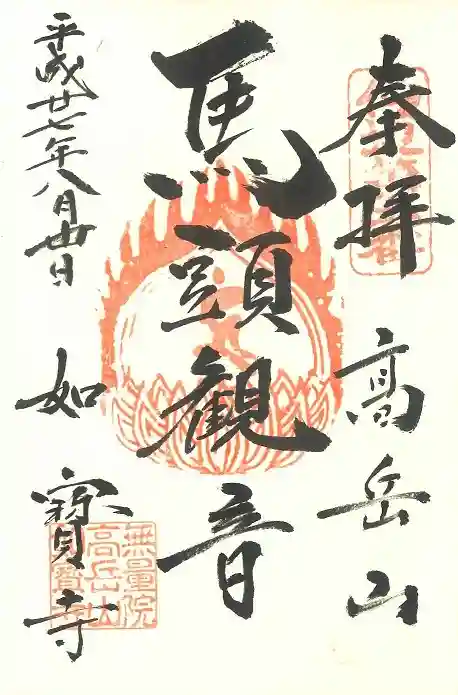 奉拝
髙岳山
馬頭観音
平成廿七年八月卅日
如寶寺
無量院
高岳山
如寶寺